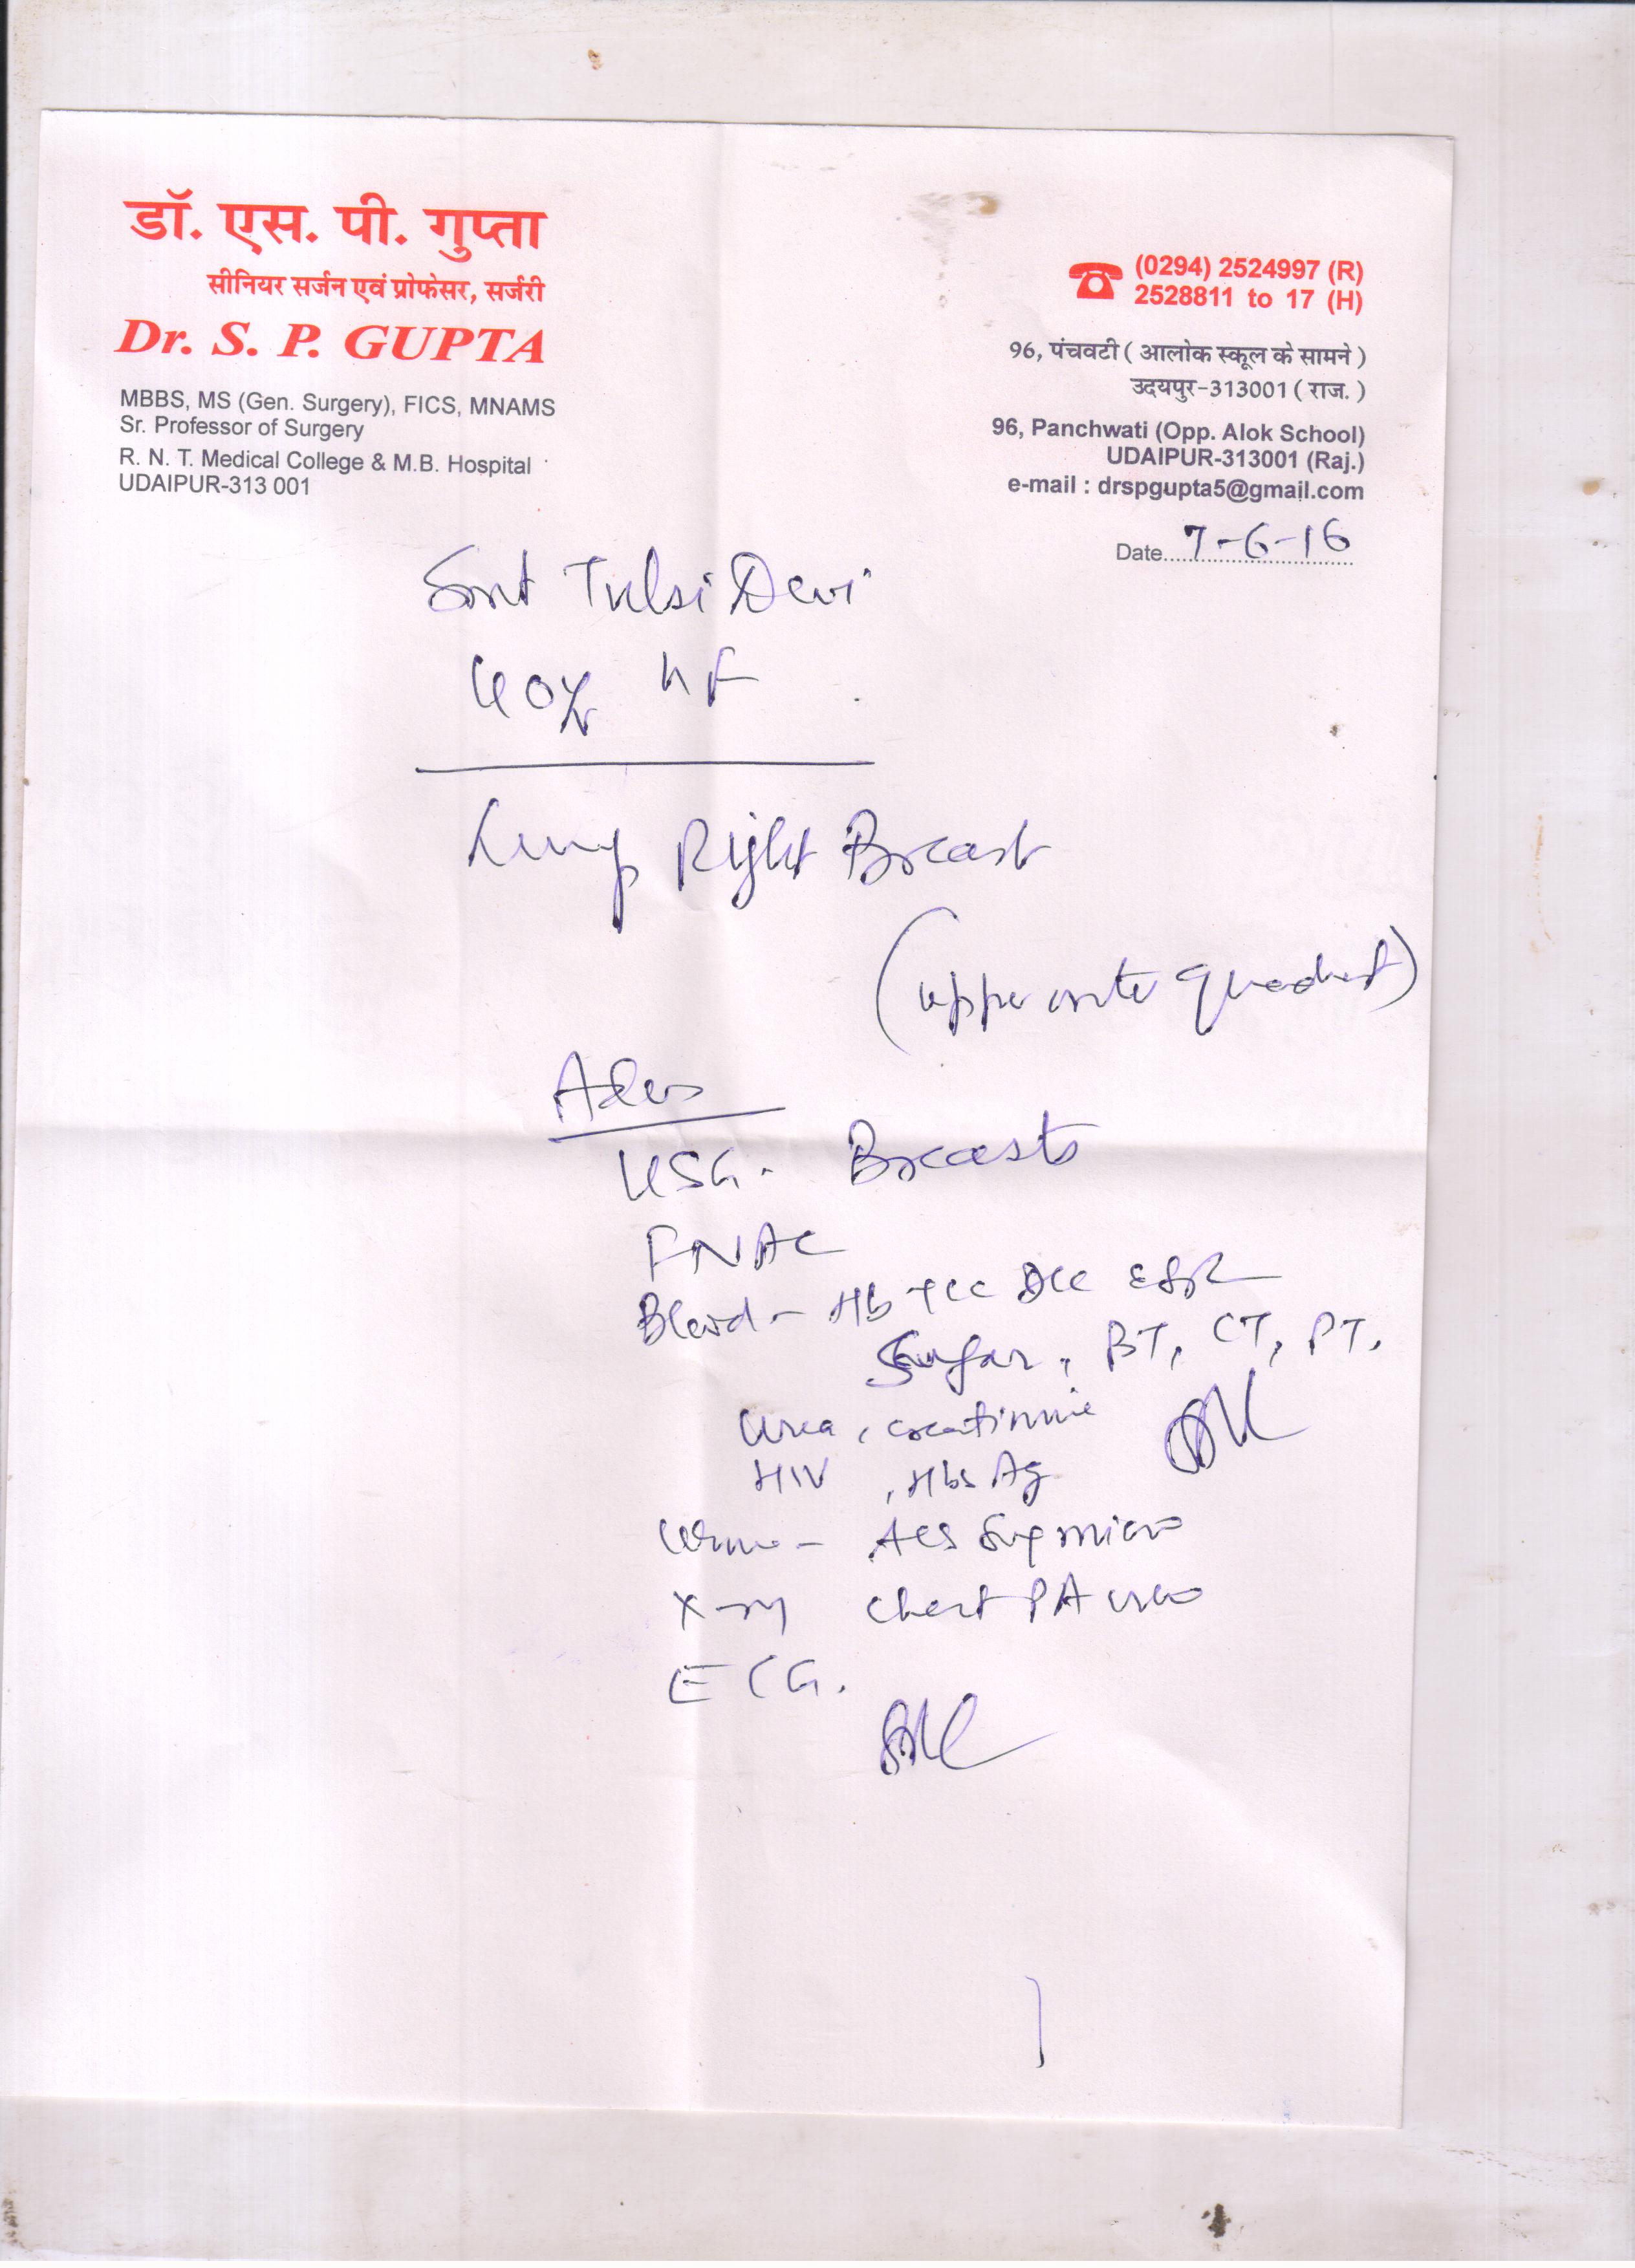 डॉ. एस. पी. गुप्ता
सीनियर सर्जन एवं प्रोफेसर, सर्जरी
Dr. S. P. GUPTA
MBBS, MS (Gen. Surgery), FICS, MNAMS
Sr. Professor of Surgery
R. N. T. Medical College & M.B. Hospital
UDAIPUR-313 001
(0294) 2524997 (R)
2528811 to 17 (H)
96, पंचवटी ( आलोक स्कूल के सामने )
उदयपुर-313001 ( राज. )
96, Panchwati (Opp. Alok School)
UDAIPUR-313001 (Raj.)
e-mail : drspgupta5@gmail.com
Date 7-6-16
Smt Tulsi Devi
40 F
Lump Right Breast
(upper outer quadrant)
Adv
USG. Breasts
FNAC
Blood - Hb TLC DLC ESR
Sugar, BT, CT, PT.
Urea, creatinine
HIV, HbsAg
Urine - Alb Sug micro
X-ray chest PA view
ECG.